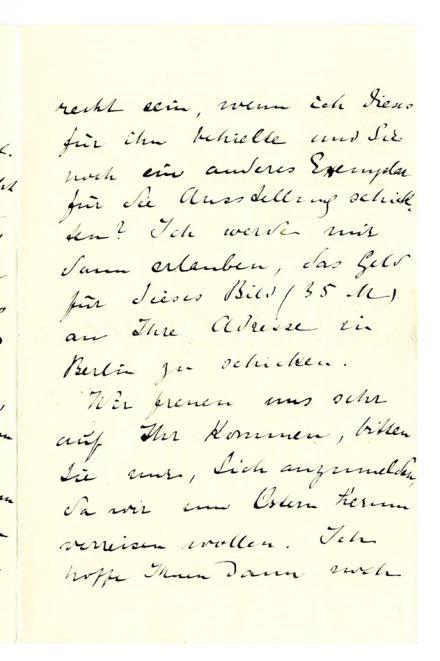 recht sein, wenn ich dieses
für ihn behielte und Sie
noch ein anderes Exemplar
für die Ausstellung schick-
ten? Ich werde mir
dann erlauben, das Geld
für dieses Bild (35 M)
an Ihre Adresse in
Berlin zu schicken.
Wir freuen uns sehr
auf Ihr Kommen, bitten
Sie nur, Sich anzumelden,
da wir um Ostern herum
verreisen wollen. Ich
hoffe Ihnen dann noch